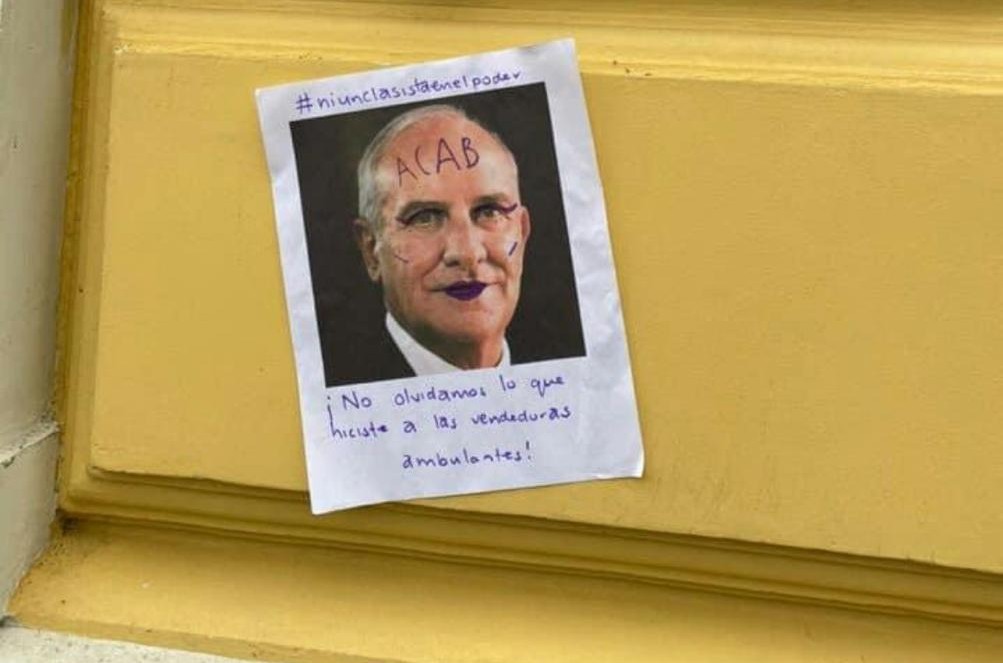 #niunclasistaenelpoder
ACAB
¡No olvidamos lo que
hiciste a las vendeduras
ambulantes!